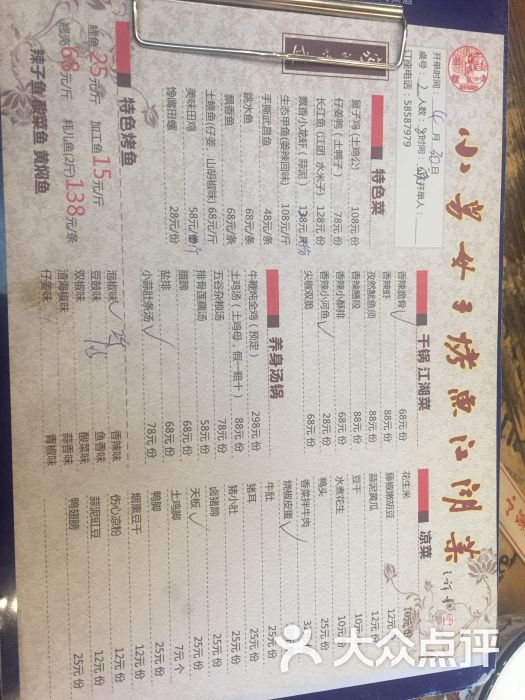 小舅女子烤鱼江湖菜
开单时间: 4月30日
桌号: 2 人数: 8 时间: 开单人:
订座电话: 58587979
特色菜
舅子鸡(土鸡公) 108元/份
仔姜鸭(土鸭子) 78元/份
长江鱼(江团 水米子) 128元/份
飘香小龙虾(蒜泥) 138元/份
生态甲鱼(姜辣回味) 108元/斤
手撕武昌鱼 48元/条
跳水鱼 68元/条
飘香鱼 68元/条
土鳝鱼(仔姜、山胡椒味) 68元/斤
美味田鸡 58元/斤
馋嘴田螺 28元/份
特色烤鱼
鲤鱼25元/斤 加工鱼15元/斤
翘壳68元/斤 耗儿鱼(2斤)138元/条
辣子鱼 酸菜鱼 黄焖鱼
干锅 江湖菜
香辣脆骨✓ 68元 份
香辣虾 88元 份
孜然鱿鱼须 88元 份
香辣鳝段 88元 份
香辣小酥排 68元 份
香辣小河鱼✓ 28元 份
尖椒双脆 68元 份
养身汤锅
牛鞭炖全鸡(预定) 298元 份
土鸡汤(土鸡母,假一赔十) 88元 份
五谷杂粮汤 78元 份
排骨莲藕汤 58元 份
腊蹄 68元 份
盐排 68元 份
小蒜肚条汤✓ 78元 份
泡椒味✓ 香辣味
豆豉味 鱼香味
双椒味 酸菜味
渣海椒味 蒜香味
仔姜味 青椒味
凉菜
花生米 10元 份
藤椒嫩胡豆 12元 份
蒜泥黄瓜 12元 份
豆干 10元 份
水煮花生 10元 份
鸭头 25元 份
香菜拌牛肉
烧椒皮蛋✓
牛肚
猪耳 25元 份
猪小肚 25元 份
卤猪蹄 25元 份
天板✓ 25元 份
土鸡脚 7元 个
鸭脚 25元 份
烟熏豆干 12元 份
伤心凉粉 12元 份
蒜泥豇豆 12元 份
鸭翅膀 25元 份
大众点评